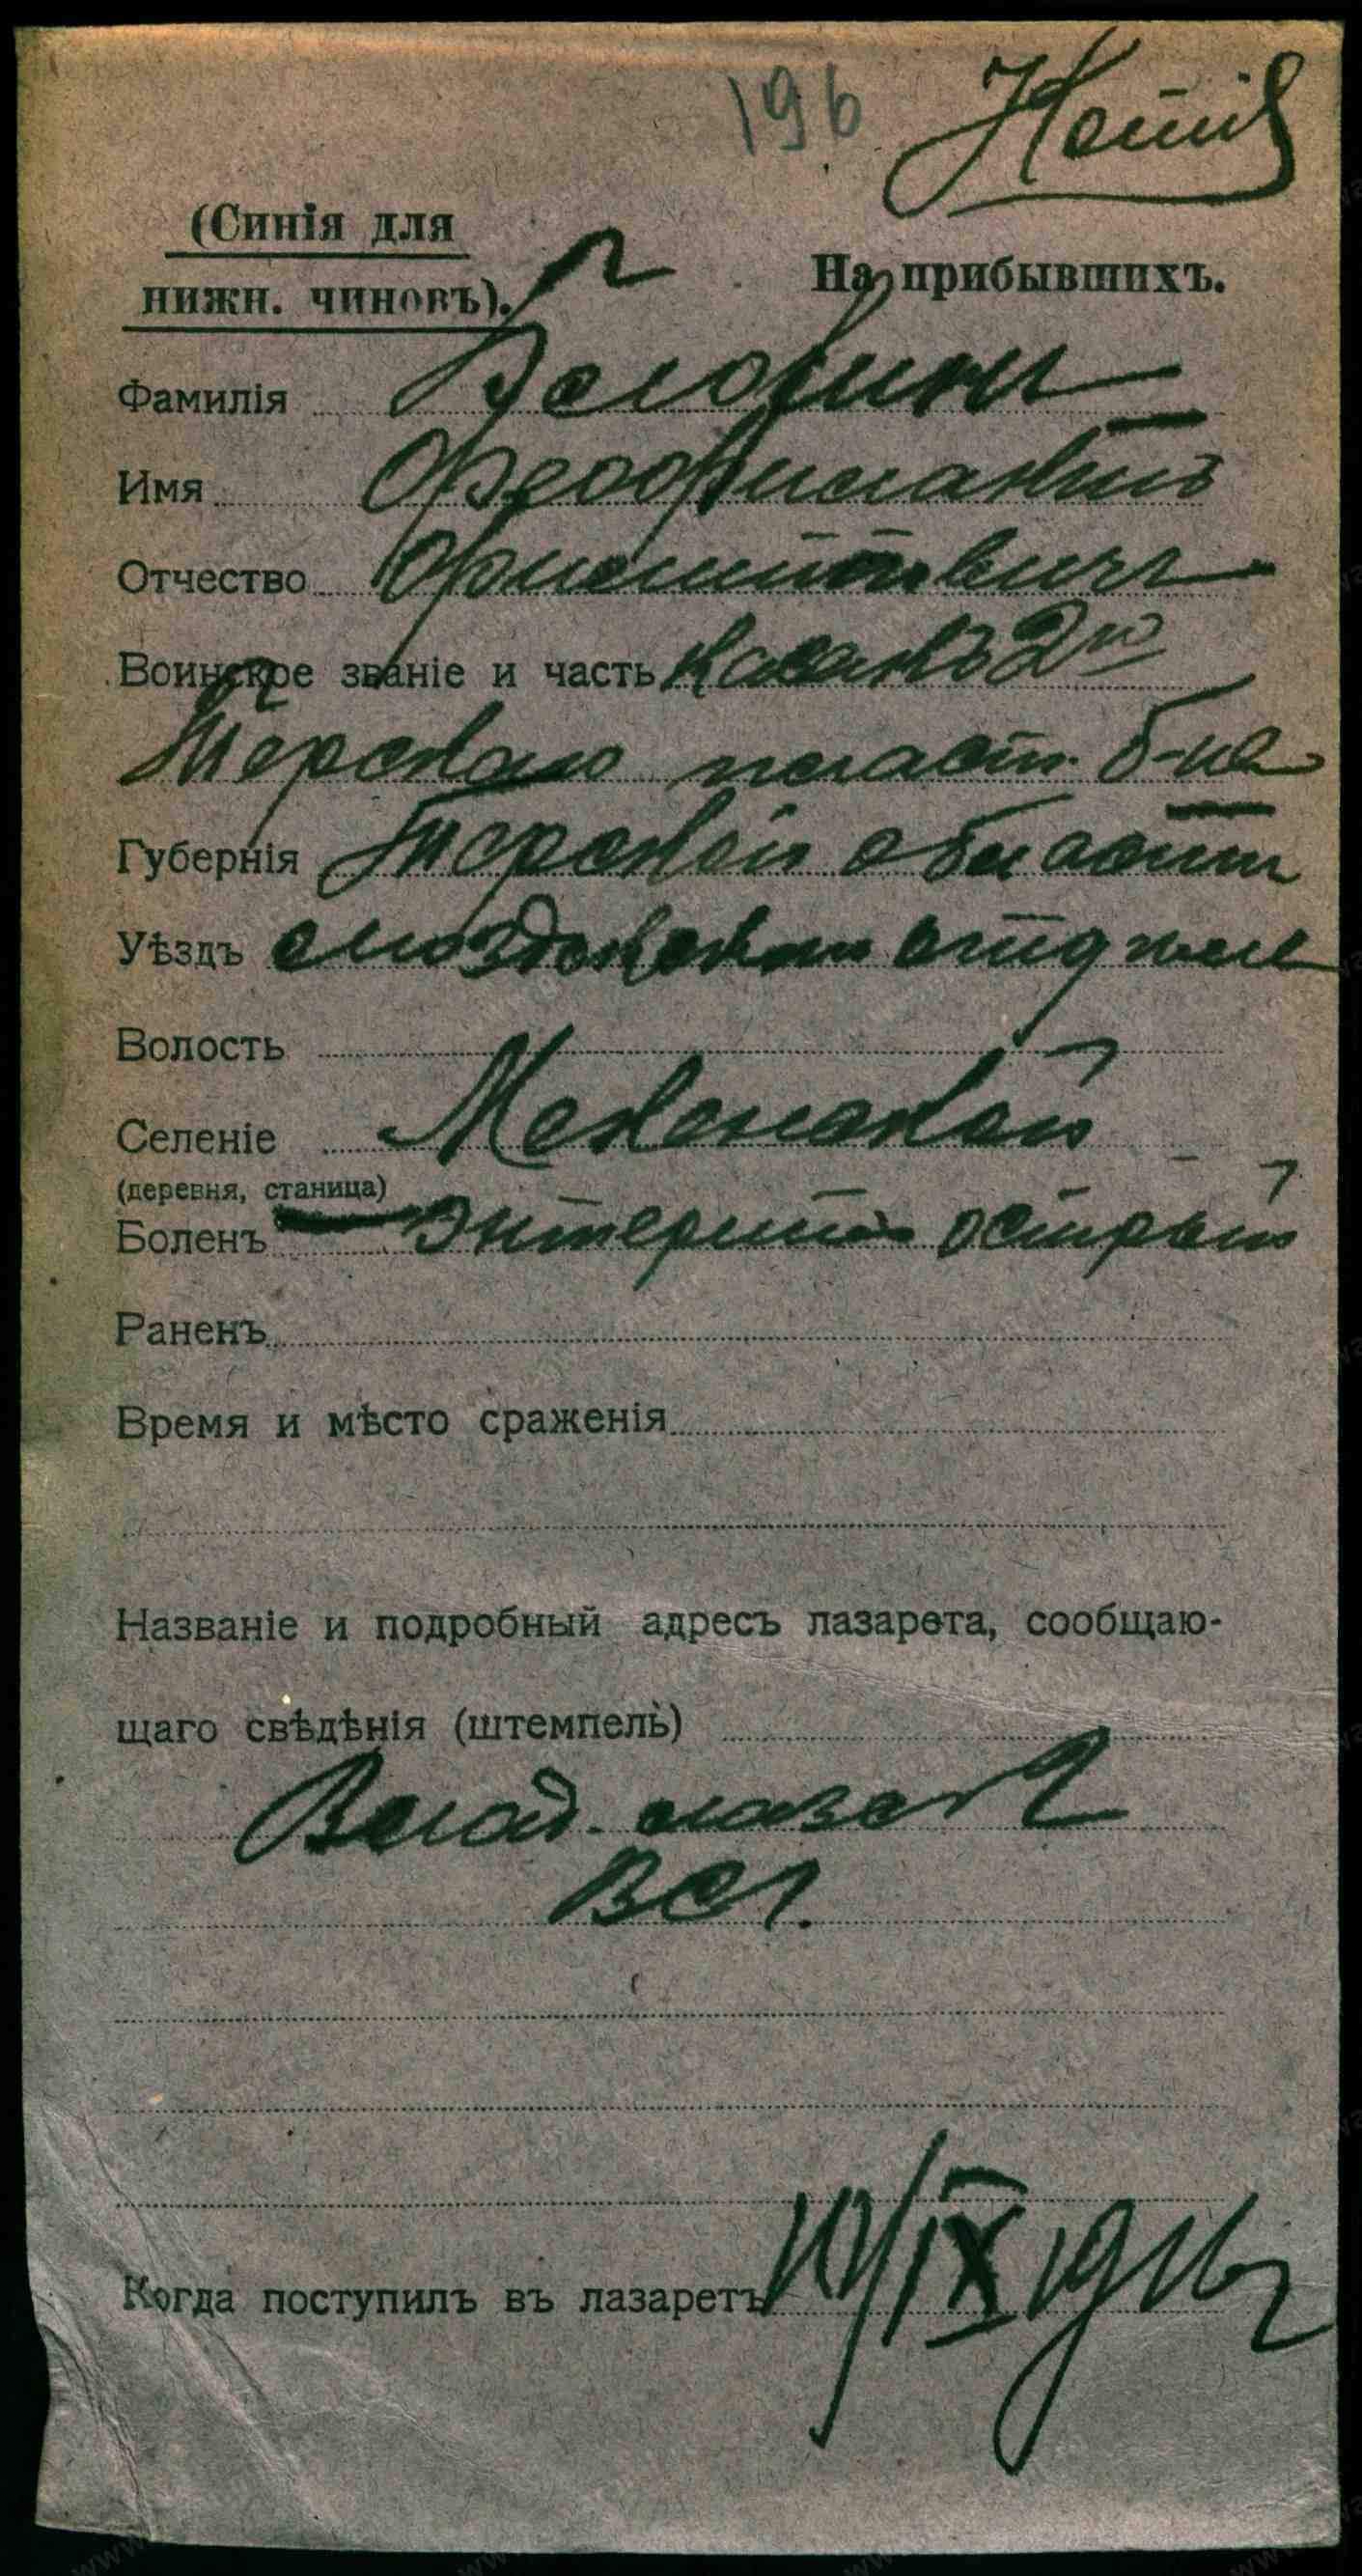 196
(Синія для
нижн. чиновъ).
На прибывшихъ.
Фамилія
Имя Феофилактъ
Отчество
Воинское званіе и часть Казакъ 2го
Терскаго пласт. б-на
Губернія Терской области
Уѣздъ Моздокскаго отдѣла
Волость
Селеніе Мекенской
(деревня, станица)
Боленъ Энтеритъ острый
Раненъ
Время и мѣсто сраженія
Названіе и подробный адресъ лазарета, сообщаю-
щаго свѣдѣнія (штемпель)
Влад. лазар
ВСГ.
Когда поступилъ въ лазаретъ /IX 1916 г